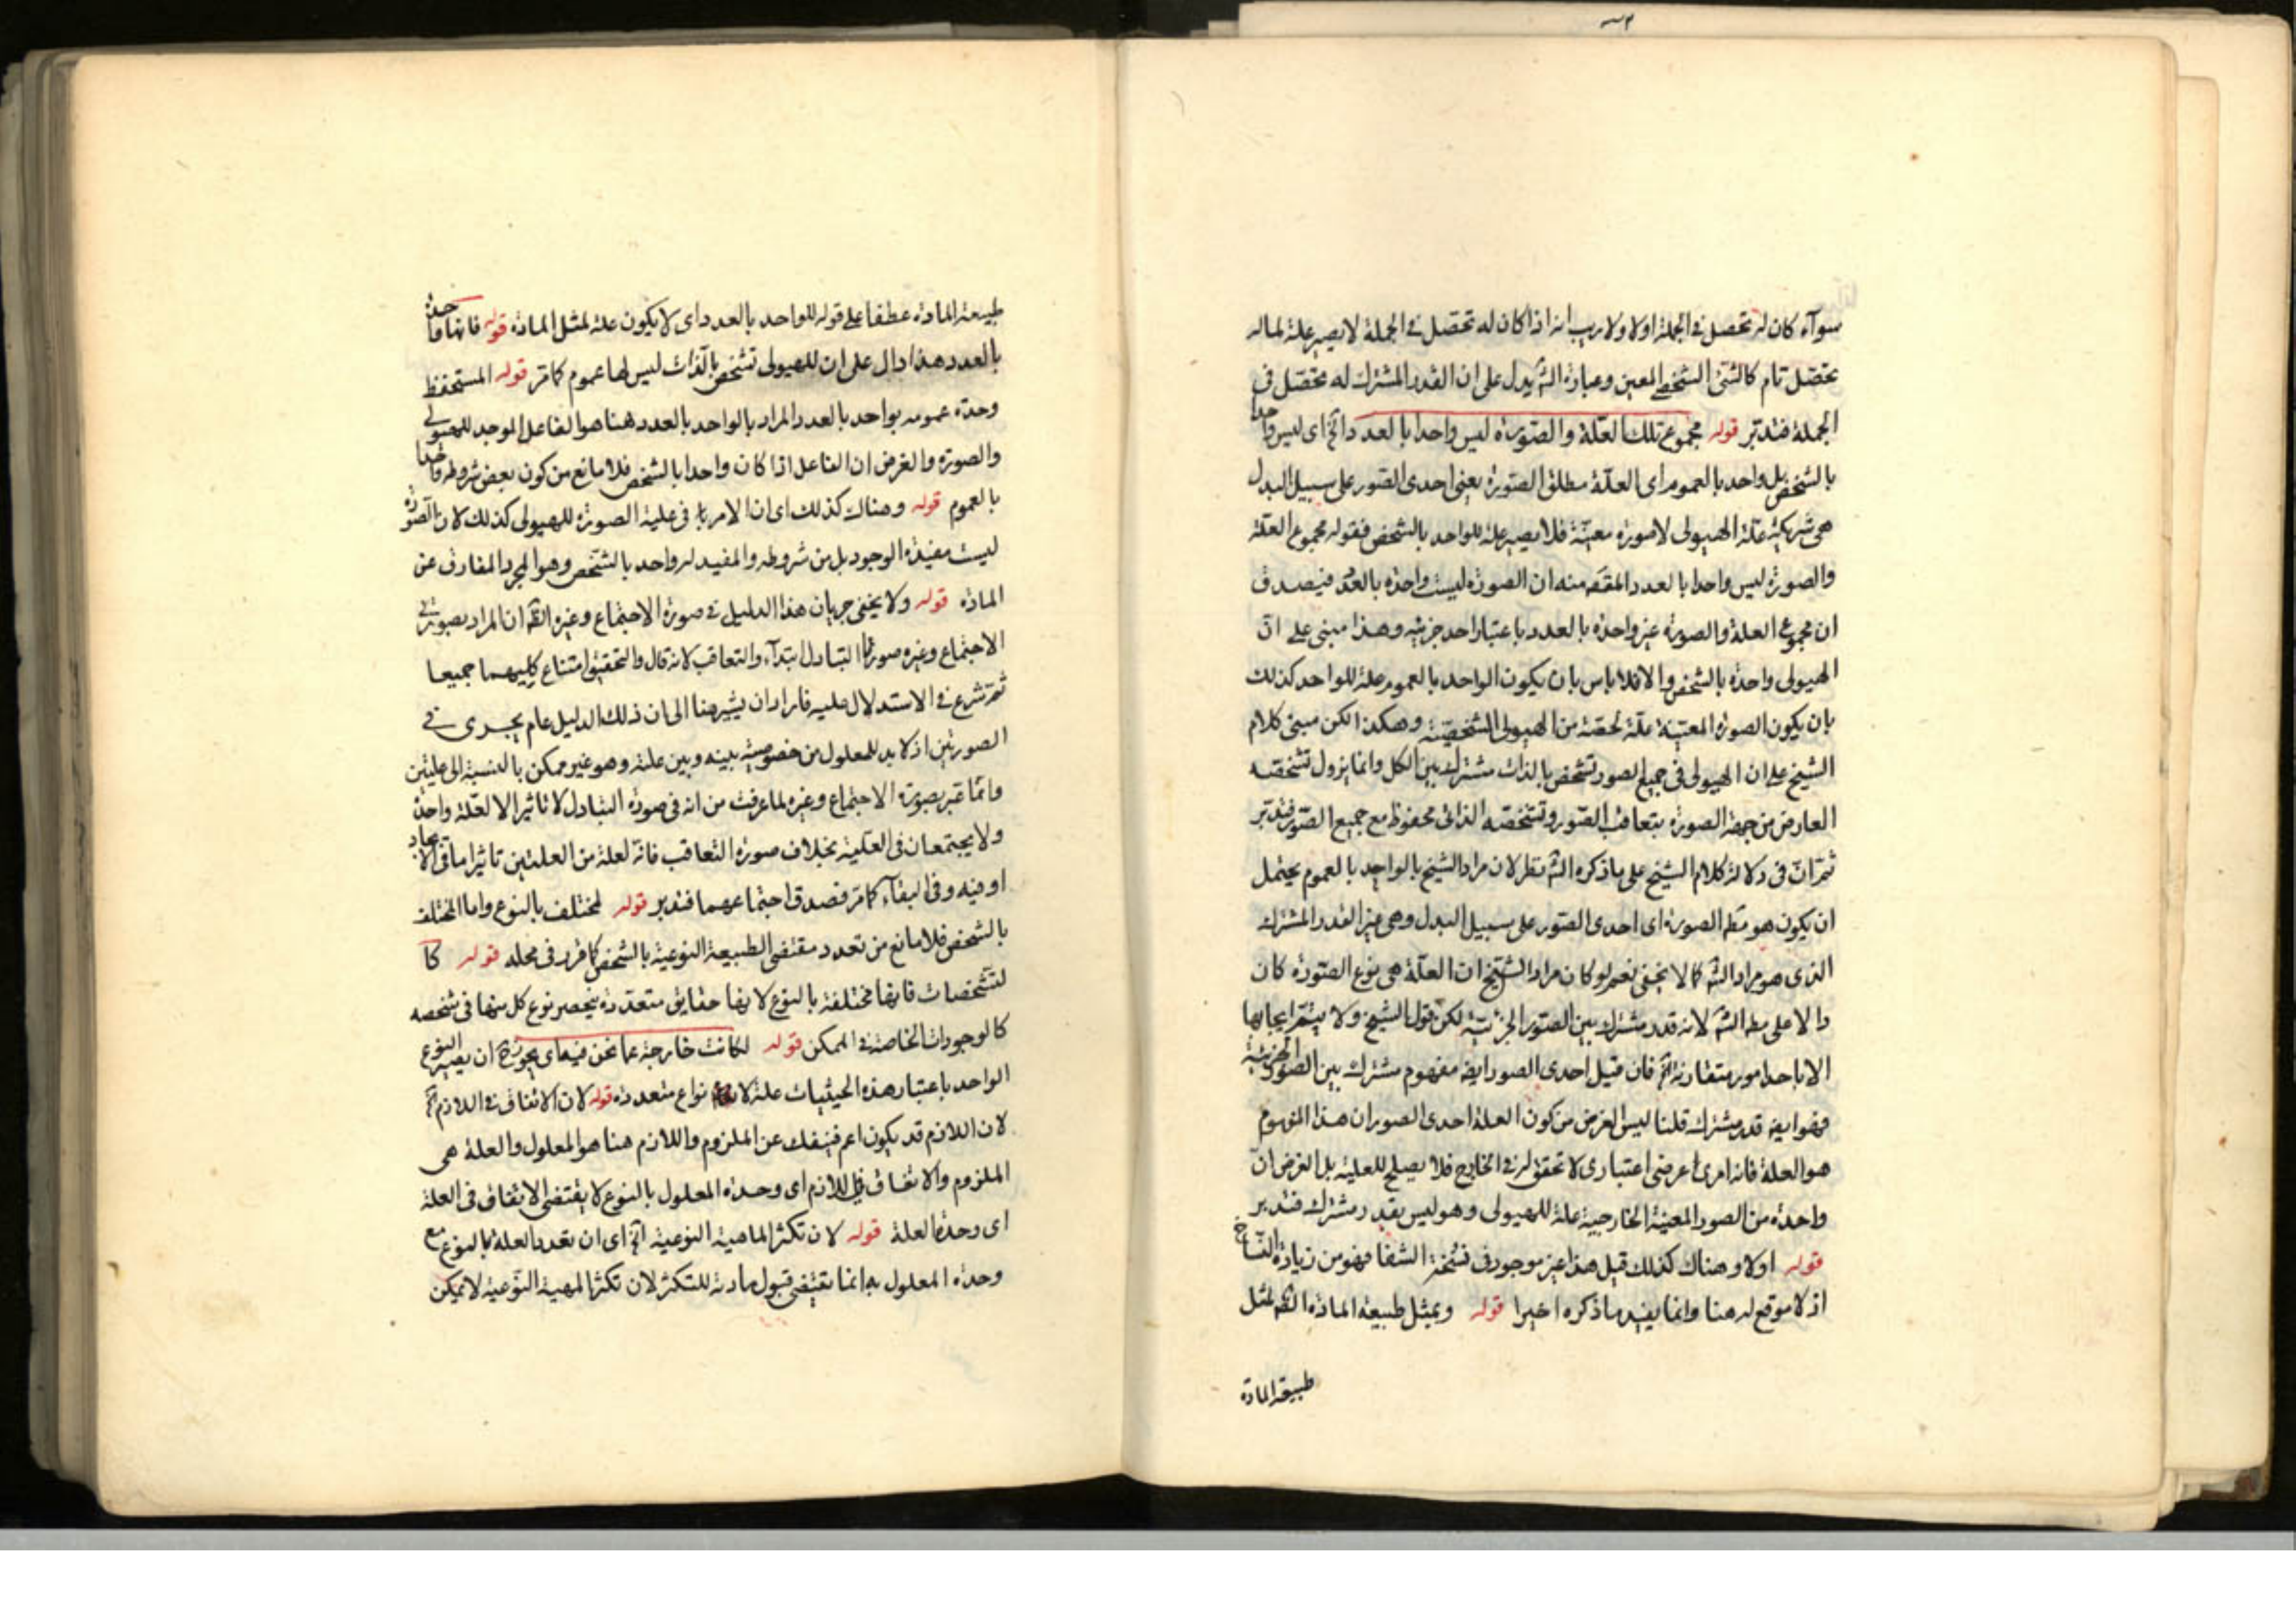 سوآء كان له تحصل فى الجملة اولا ولا ريب انه اذا كان له تحصل فى الجملة لا يصير علة لما له
تحصل تام كالشئ الشخصى المعين وعبارة الش يدل على ان القدر المشترك له تحصل فى
الجملة فتدبر قوله مجموع تلك العلة والصورة ليس واحدا بالعدد الخ اى ليس واحدا
بالشخص بل واحد بالعموم اى العلة مطلق الصورة يعنى احدى الصور على سبيل البدل
هى شريكة علة الهيولى لا صورة معينة فلا يصير علة للواحد بالشخص فقوله مجموع العلة
والصورة ليس واحدا بالعدد المقصم منه ان الصورة ليست واحدة بالعدد فيصدق
ان مجموع العلة والصورة غير واحدة بالعدد باعتبار احد جزئيه وهذا مبنى على ان
الهيولى واحدة بالشخص والا فلا باس بان يكون الواحد بالعموم علة للواحد كذلك
بان يكون الصورة المعينة علة لحصة من الهيولى الشخصية وهكذا لكن مبنى كلام
الشيخ على ان الهيولى فى جميع الصور تشخص بالذات مشترك بين الكل وانما يزول تشخصه
العارض من جهة الصورة بتعاقب الصور وتشخصه الذاتى محفوظ مع جميع الصور فتدبر
ثم ان فى دلالة كلام الشيخ على ما ذكره الش نظر لان مراد الشيخ بالواحد بالعموم يحتمل
ان يكون هو مط الصورة اى احدى الصور على سبيل البدل وهى غير القدر المشترك
الذى هو مراد الش كما لا يخفى نعم لو كان مراد الشيخ ان العلة هى نوع الصورة كان
دالا على مط الش لانه قدر مشترك بين الصور الجزئية لكن قول الشيخ ولا يتم ايجابها
الا باحد امور متقارنة الخ فان قيل احدى الصور ايضه مفهوم مشترك بين الصور الجزئية
فهو ايضه قدر مشترك قلنا ليس الغرض من كون العلة احدى الصور ان هذا المفهوم
هو العلة فانه امر عرضى اعتبارى لا تحقق له فى الخارج فلا يصلح للعلية بل الغرض ان
واحدة من الصور المعينة الخارجية علة للهيولى وهو ليس بقدر مشترك فتدبر
قوله اولا وهناك كذلك قيل هذا غير موجود فى نسخة الشفا فهو من زيادة النساخ
اذ لا موقع له هنا وانما يفيد ما ذكره اخيرا قوله وبمثل طبيعة المادة الظم لمثل
طبيعة المادة
طبيعة المادة عطفا على قوله للواحد بالعدد اى لا يكون علة لمثل المادة قوله فانها واحدة
بالعدد هذا دال على ان للهيولى تشخص بالذات ليس لها عموم كما مر قوله المستحفظ
وحدة عمومه بواحد بالعدد المراد بالواحد بالعدد هنا هو الفاعل الموجد للهيولى
والصورة والغرض ان الفاعل اذا كان واحدا بالشخص فلا مانع من كون بعض شروطه واحدا
بالعموم قوله وهناك كذلك اى ان الامر فى علية الصورة للهيولى كذلك لان الصورة
ليست مفيدة الوجود بل من شروطه والمفيد له واحد بالشخص وهو المجرد المفارق عن
المادة قوله ولا يخفى جريان هذا الدليل فى صورة الاجتماع وغيره الظم ان المراد بصورتى
الاجتماع وغيره صورتا التبادل ابتدآء والتعاقب لانه قال والتحقيق امتناع كليهما جميعا
ثم شرع فى الاستدلال عليه فاراد ان يشير هنا الى ان ذلك الدليل عام يجرى فى
الصورتين اذ لا بد للمعلول من خصوصية بينه وبين علته وهو غير ممكن بالنسبة الى علتين
وانما عبر بصورة الاجتماع وغيره لما عرفت من انه فى صورة التبادل لا تاثير الا لعلة واحدة
ولا يجتمعان فى العلية بخلاف صورة التعاقب فانه لعلة من العلتين تاثيرا ما فى الايجاد
او فيه وفى البقآء كما مر فصدق اجتماعهما فتدبر قوله لمختلف بالنوع واما المختلف
بالشخص فلا مانع من تعدد مقتضى الطبيعة النوعية بالشخص كما قرر فى محله قوله كا
لتشخصات فانها مختلفة بالنوع لانها حقايق متعددة ينحصر نوع كل منها فى شخصه
كالوجودات الخاصة فى الممكن قوله لكانت خارجة عما نحن فيه اى يجوز ح ان يصير النوع
الواحد باعتبار هذه الحيثيات علة لانواع متعددة قوله لان الاتفاق فى اللازم الخ
لان اللازم قد يكون اعم فينفك عن الملزوم واللازم هنا هو المعلول والعلة هى
الملزوم والاتفاق فى اللازم اى وحدة المعلول بالنوع لا يقتضى الاتفاق فى العلة
اى وحدة العلة قوله لان تكثر الماهية النوعية الخ اى ان تعدد العلة بالنوع مع
وحدة المعلول به انما يقتضى قبول مادته للتكثر لان تكثر المهية النوعية لا يمكن